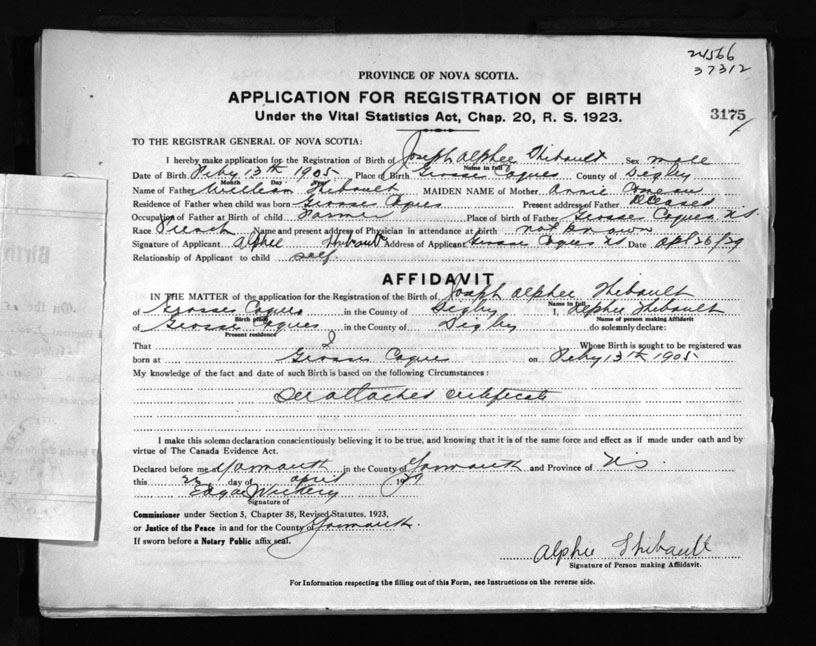 24566
37312
PROVINCE OF NOVA SCOTIA.
APPLICATION FOR REGISTRATION OF BIRTH
Under the Vital Statistics Act, Chap. 20, R. S. 1923.
3175
TO THE REGISTRAR GENERAL OF NOVA SCOTIA:
I hereby make application for the Registration of Birth of Joseph Alphee Thibault Sex male
Name in full
Date of Birth Feby 13th 1905 Place of Birth Grosses Coques County of Digby
Month Day Year
Name of Father William Thibault MAIDEN NAME of Mother Annie Comeau
Residence of Father when child was born Grosses Coques Present address of Father Deceased
Occupation of Father at Birth of child Farmer Place of birth of Father Grosses Coques N.S.
Race French Name and present address of Physician in attendance at birth not known
Signature of Applicant Alphee Thibault Address of Applicant Grosses Coques NS Date Apl 26/39
Relationship of Applicant to child self.
AFFIDAVIT
IN THE MATTER of the application for the Registration of the Birth of Joseph Alphee Thibault
Name in full
of Grosses Coques in the County of Digby I, Alphee Thibault
Birth place Name of person making Affidavit
of Grosses Coques in the County of Digby do solemnly declare:
Present residence
That I Whose Birth is sought to be registered was
born at Grosses Coques on Feby 13th 1905
My knowledge of the fact and date of such Birth is based on the following Circumstances:
See attached certificate
I make this solemn declaration conscientiously believing it to be true, and knowing that it is of the same force and effect as if made under oath and by
virtue of The Canada Evidence Act.
Declared before me at Yarmouth in the County of Yarmouth and Province of N.S.
this day of April 19
Edgar
Signature of
Commissioner under Section 5, Chapter 38, Revised Statutes, 1923,
or Justice of the Peace in and for the County of Yarmouth.
If sworn before a Notary Public affix seal.
Alphee Thibault
Signature of Person making Affidavit.
For Information respecting the filling out of this Form, see Instructions on the reverse side.